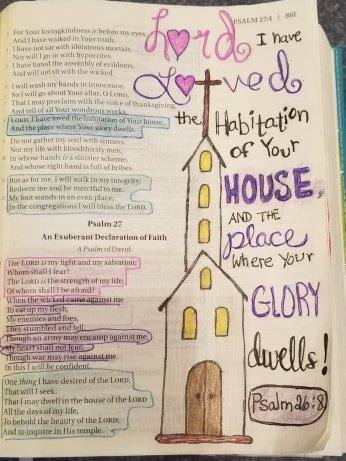 PSALM 27:4 | 861
For Your lovingkindness is before my eyes,
And I have walked in Your truth.
I have not sat with idolatrous mortals,
Nor will I go in with hypocrites.
I have hated the assembly of evildoers,
And will not sit with the wicked.
I will wash my hands in innocence;
So I will go about Your altar, O LORD,
That I may proclaim with the voice of thanksgiving,
And tell of all Your wondrous works.
LORD, I have loved the habitation of Your house,
And the place where Your glory dwells.
Do not gather my soul with sinners,
Nor my life with bloodthirsty men,
In whose hands is a sinister scheme,
And whose right hand is full of bribes.
But as for me, I will walk in my integrity;
Redeem me and be merciful to me.
My foot stands in an even place;
In the congregations I will bless the LORD.
Psalm 27
An Exuberant Declaration of Faith
A Psalm of David.
The LORD is my light and my salvation;
Whom shall I fear?
The LORD is the strength of my life;
Of whom shall I be afraid?
When the wicked came against me
To eat up my flesh,
My enemies and foes,
They stumbled and fell.
Though an army may encamp against me,
My heart shall not fear;
Though war may rise against me,
In this I will be confident.
One thing I have desired of the LORD,
That will I seek:
That I may dwell in the house of the LORD
All the days of my life,
To behold the beauty of the LORD,
And to inquire in His temple.
Lord I have
Loved
the Habitation
of Your
HOUSE,
AND THE
place
Where Your
GLORY
dwells!
Psalm 26:8